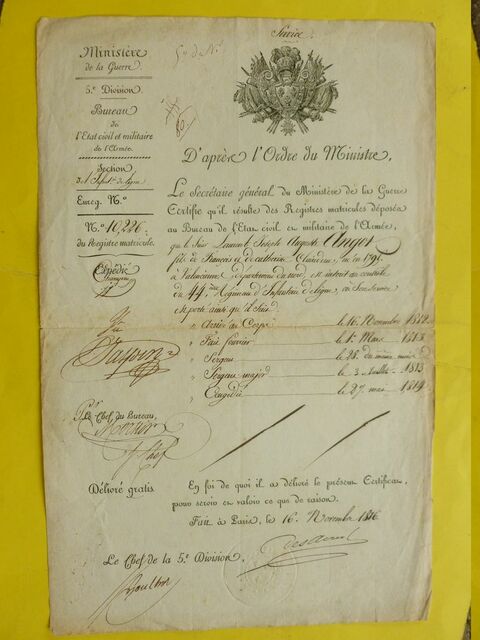 Service
Ministère
de la Guerre.
5.e Division.
Bureau
de
l'Etat civil et militaire
de l'Armée.
Section
d'Infant.ie de ligne
Enreg. N.o
N.o 10,226
du Registre matricule.
Expédié
D'après l'Ordre du Ministre,
Le Secrétaire général du Ministère de la Guerre
Certifie qu'il résulte des Registres matricules déposés
au Bureau de l'Etat civil et militaire de l'Armée,
que le Sieur Laurent Joseph Auguste
fils de François et de Catherine, né en 179
à Valenciennes département du nord, est inscrit au contrôle
du 44.me Régiment d'Infanterie de ligne, où son service
est porté ainsi qu'il suit
Arrivé au Corps le 16. Novembre 1812
Fait fourrier le 1.er Mars 1813
Sergent le 28. du même mois
Sergent major le 3. Juillet 1813
Congédié le 27. mai 1814
Vu
Le Chef du Bureau,
Délivré gratis
En foi de quoi il a délivré le présent Certificat,
pour servir et valoir ce que de raison.
Fait à Paris, le 16. Novembre 1816
Le Chef de la 5.e Division,